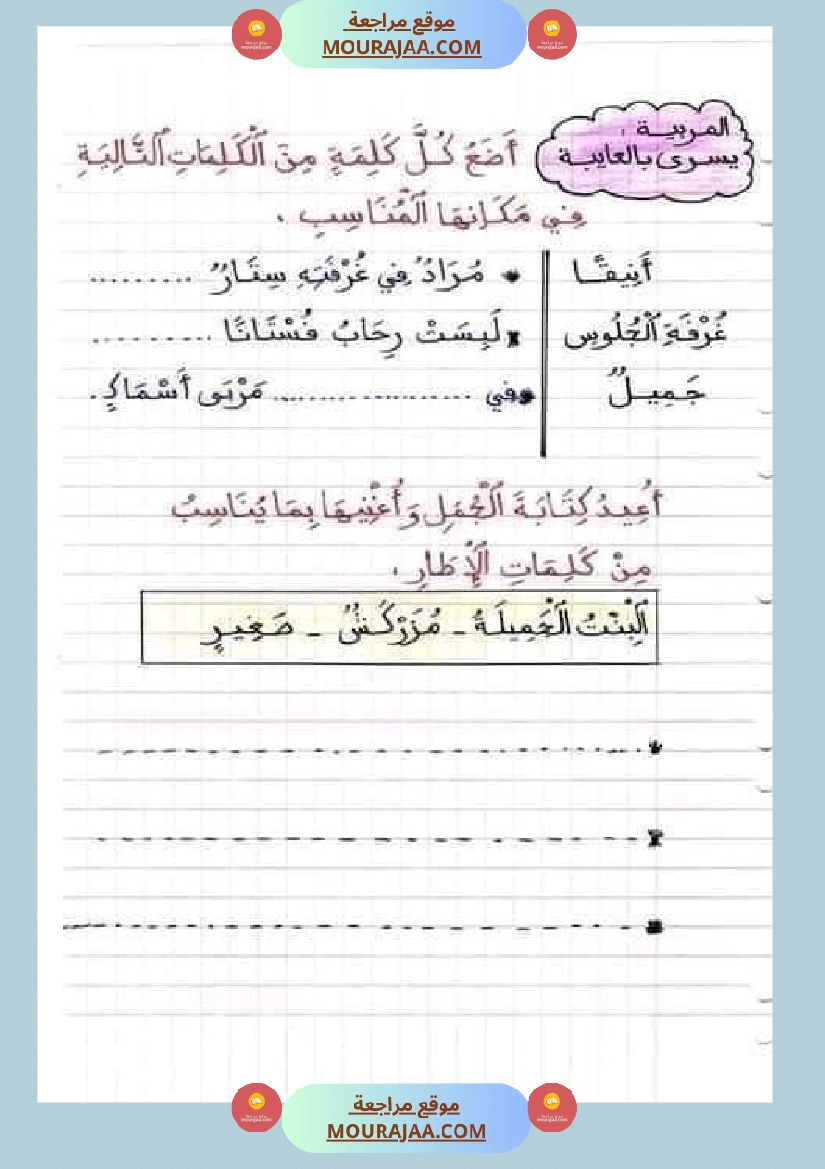 موقع مراجعة
MOURAJAA.COM
المربية :
يسرى بالعايبة
أَضَعُ كُلَّ كَلِمَةٍ مِنَ ٱلْكَلِمَاتِ ٱلتَّالِيَةِ
فِي مَكَانِهَا ٱلْمُنَاسِبِ .
أَنِيقًا
مُرَادٌ فِي غُرْفَتِهِ سِتَارٌ .........
غُرْفَةِ ٱلْجُلُوسِ
لَبِسَتْ رِحَابُ فُسْتَانًا ..........
جَمِيلٌ
وفي .................. مَرْبَى أَسْمَاكٍ.
أُعِيدُ كِتَابَةَ ٱلْجُمَلِ وَأُغْنِيهَا بِمَا يُنَاسِبُ
مِنْ كَلِمَاتِ ٱلْإِطَارِ .
ٱلْبِنْتُ ٱلْجَمِيلَةُ - مُزَرْكَشٌ - صَغِيرٍ
موقع مراجعة
MOURAJAA.COM